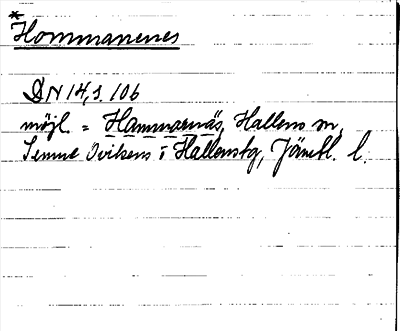 *Hommanenes
DN 14, s. 106
möjl. = Hammarnäs, Hallens sn,
Ovikens i Hallenstg, Jämtl. l.